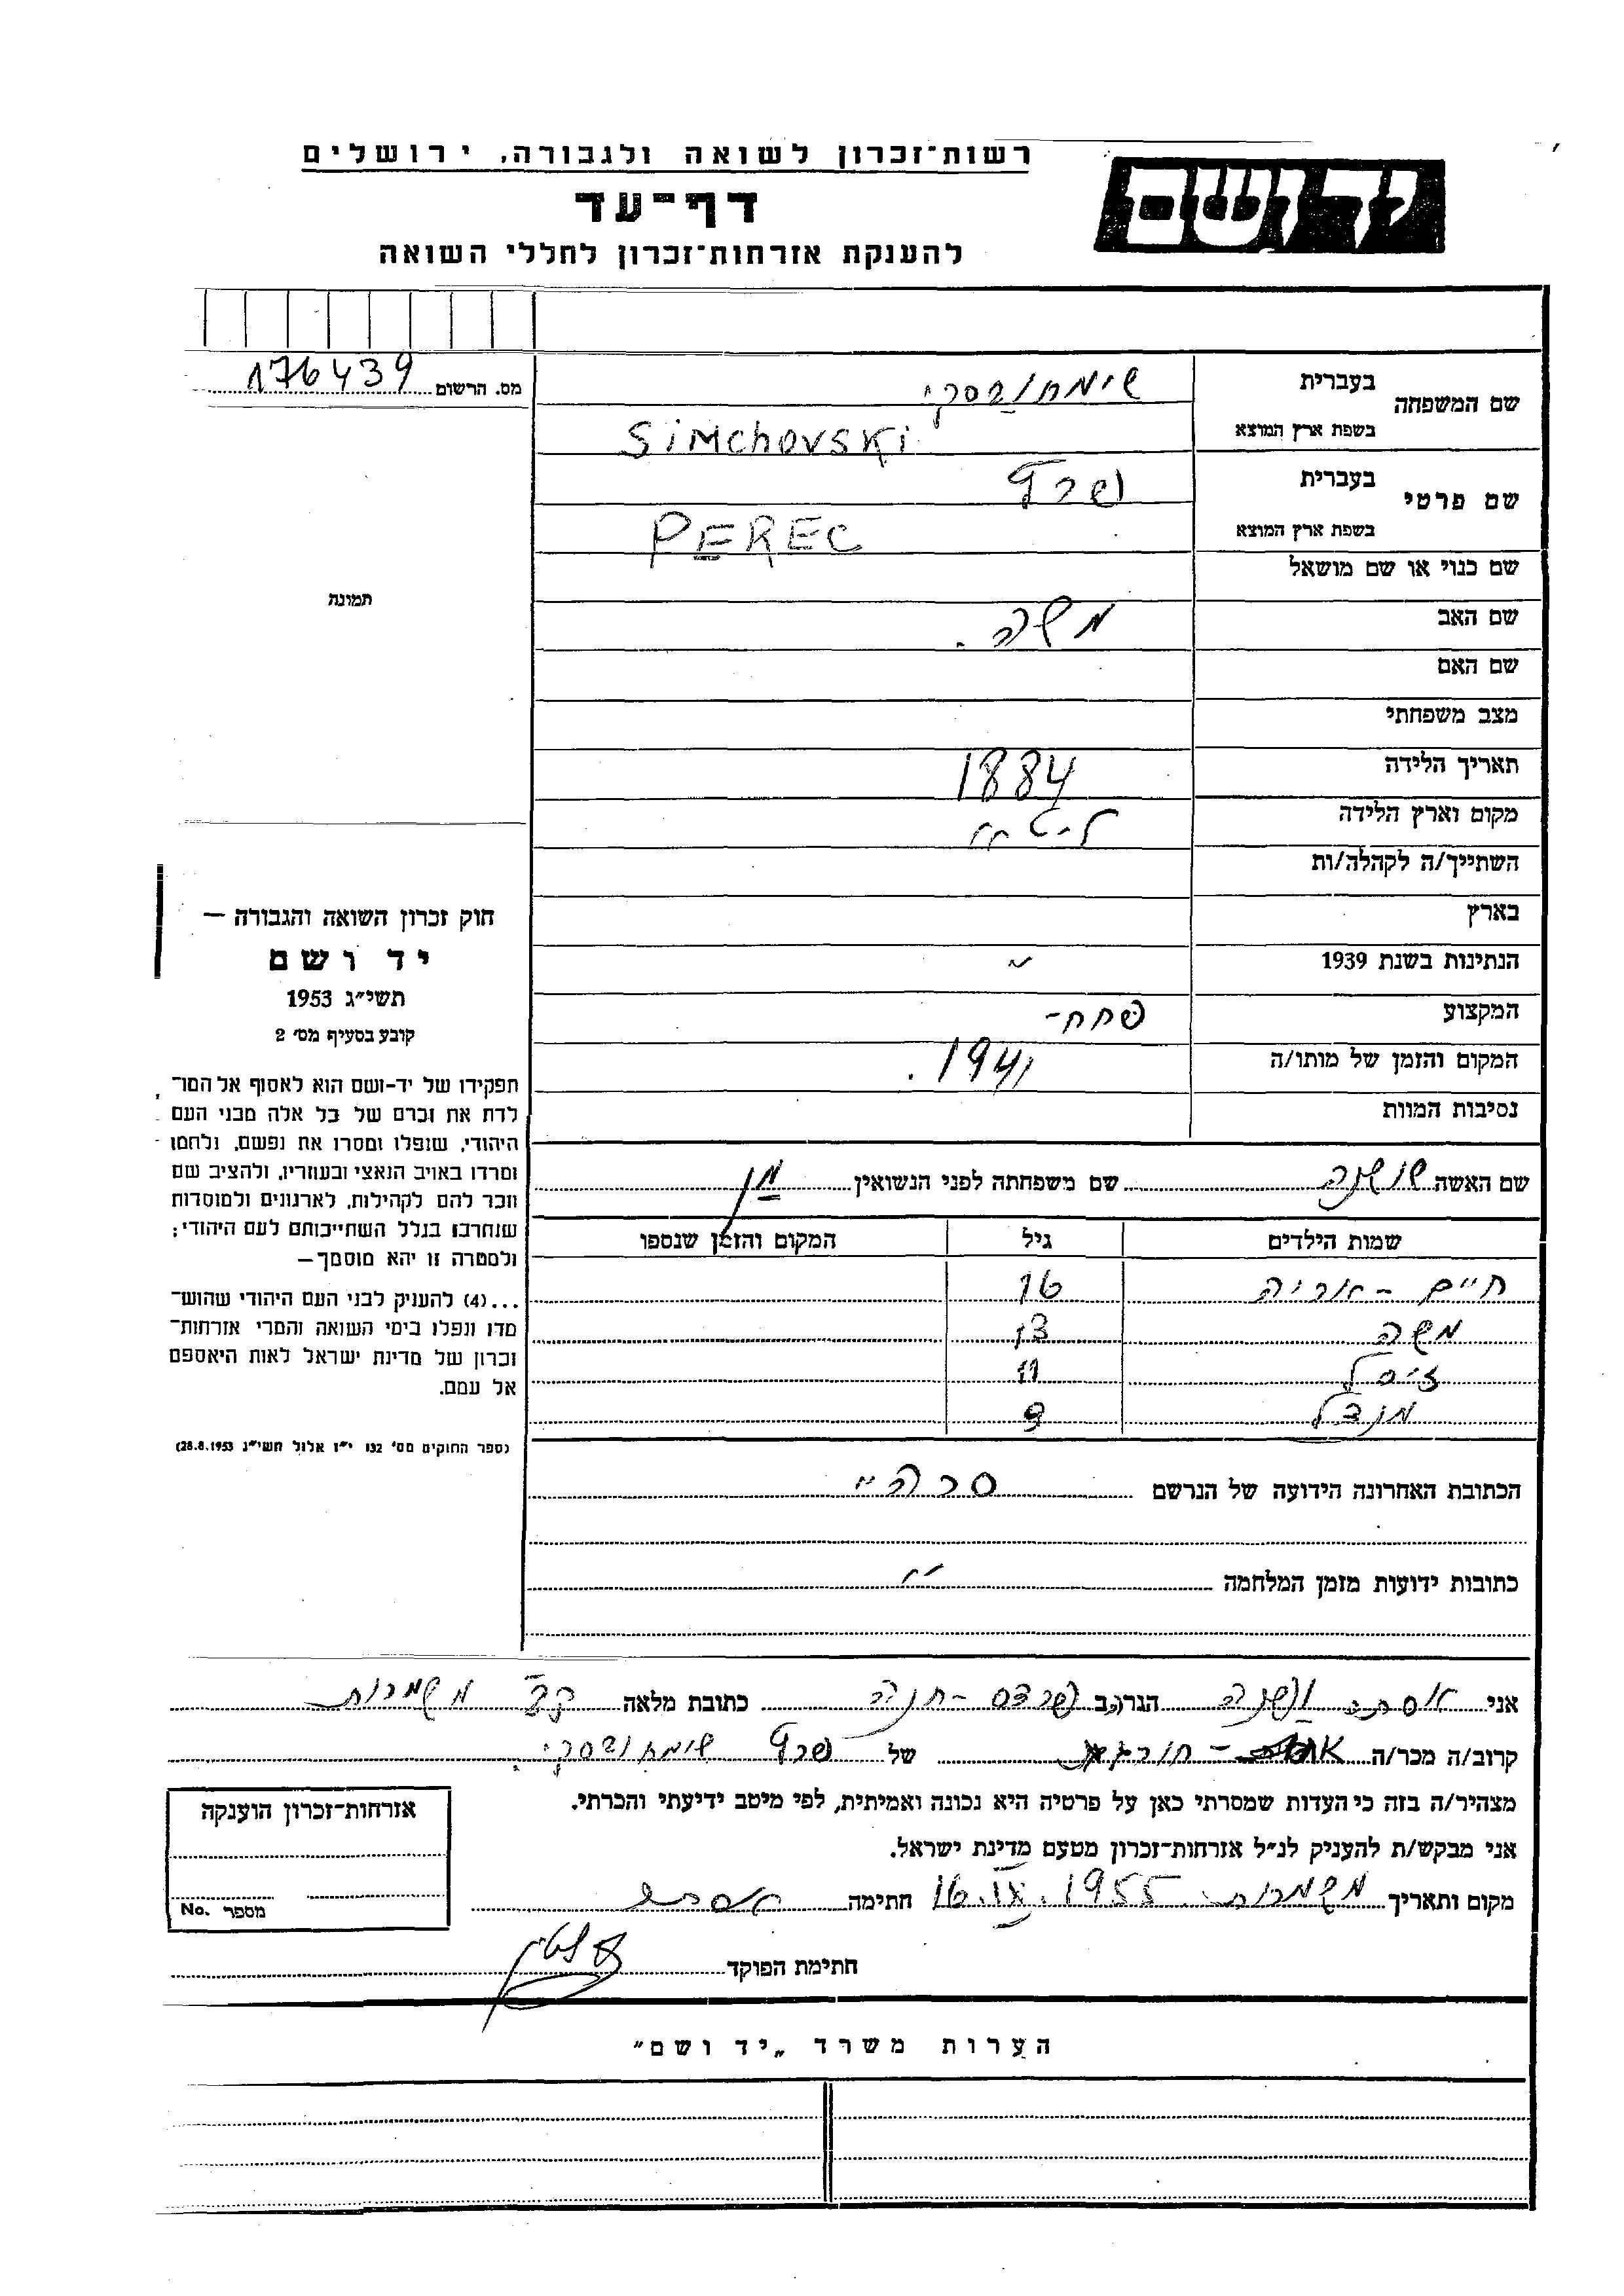 רשות־זכרון לשואה ולגבורה, ירושלים
יד ושם
דף־עד
להענקת אזרחות־זכרון לחללי השואה
מס. הרשום 176439
שם המשפחה
בעברית שימחובסקי
בשפת ארץ המוצא SiMChovSKi
שם פרטי
בעברית פרץ
בשפת ארץ המוצא PEREC
תמונה
שם כנוי או שם מושאל
שם האב משה.
שם האם
מצב משפחתי
תאריך הלידה 1884
מקום וארץ הלידה
השתייך/ה לקהלה/ות
בארץ
הנתינות בשנת 1939
המקצוע
המקום והזמן של מותו/ה 1941.
נסיבות המוות
שם האשה שושנה שם משפחתה לפני הנשואין
שמות הילדים גיל המקום והזמן שנספו
חיים - אריה 16
משה 13
זיסל 11
מנדל 9
הכתובת האחרונה הידועה של הנרשם
כתובות ידועות מזמן המלחמה
חוק זכרון השואה והגבורה —
יד ושם
תשי״ג 1953
קובע בסעיף מס׳ 2
תפקידו של יד-ושם הוא לאסוף אל המו־
לדת את זכרם של כל אלה מבני העם
היהודי, שנפלו ומסרו את נפשם, נלחמו
ומרדו באויב הנאצי ובעוזריו, ולהציב שם
וזכר להם לקהילות, לארגונים ולמוסדות
שנחרבו בגלל השתייכותם לעם היהודי;
ולמטרה זו יהא מוסמך—
...(4) להעניק לבני העם היהודי שהוש־
מדו ונפלו בימי השואה והמרי אזרחות־
זכרון של מדינת ישראל לאות היאספם
אל עמם.
(ספר החוקים מס׳ 132 י״ז אלול תשי״ג 28.8.1953)
אני אסתר הגר/ה ב פרדס-חנה כתובת מלאה קב׳ משמרות
קרוב/ה מכר/ה של פרץ שימחובסקי.
מצהיר/ה בזה כי העדות שמסרתי כאן על פרטיה היא נכונה ואמיתית, לפי מיטב ידיעתי והכרתי.
אני מבקש/ת להעניק לנ״ל אזרחות־זכרון מטעם מדינת ישראל.
מקום ותאריך משמרות 16.IX.1955 חתימה
חתימת הפוקד
אזרחות־זכרון הוענקה
מספר No.
הערות משרד „יד ושם״